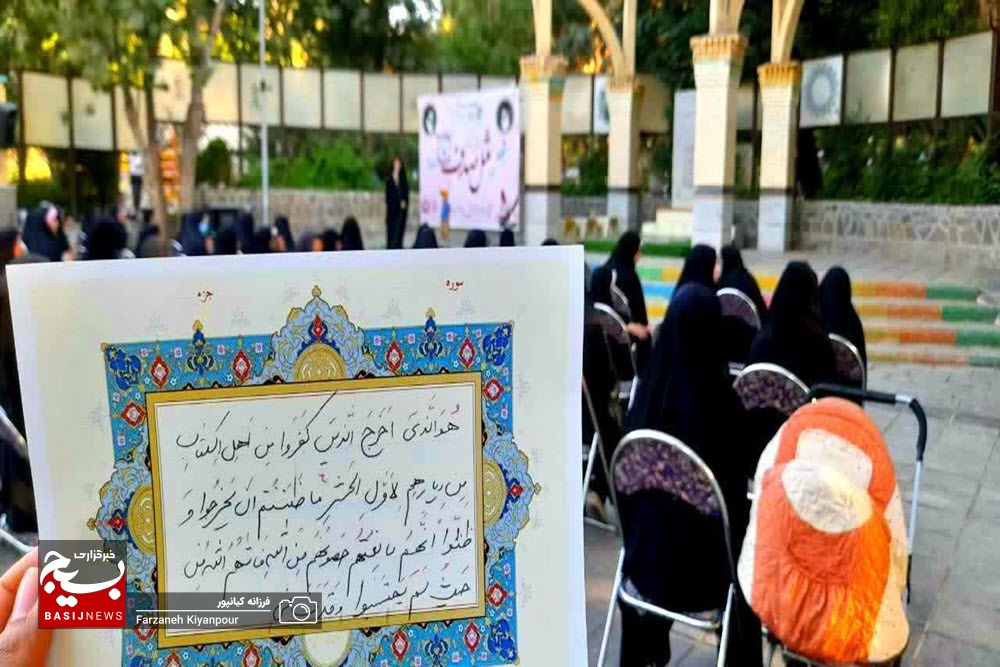 مثل صدف
جزء
سوره
هُوَ الَّذی اَخرَجَ الَّذینَ کَفَروا مِن اَهلِ الکِتابِ
مِن دِیارِهِم لِاَوَّلِ الحَشرِ ما ظَنَنتُم اَن یَخرُجوا وَ
ظَنّوا اَنَّهُم مانِعَتُهُم حُصونُهُم مِنَ اللهِ فَاَتٰهُمُ اللهُ مِن
حَیثُ لَم یَحتَسِبوا وَ قَذَفَ فی
خبرگزاری
بسیج
BASIJNEWS
فرزانه کیانپور
Farzaneh Kiyanpour